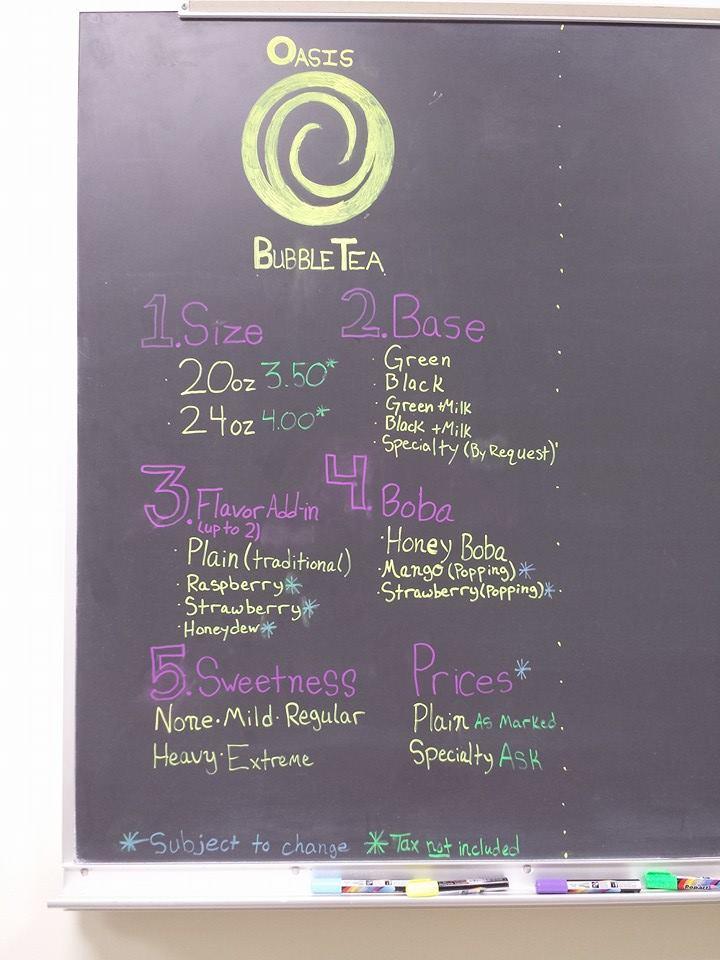 OASIS
BUBBLE TEA
1. Size
· 20oz 3.50*
· 24oz 4.00*
2. Base
· Green
· Black
· Green +Milk
· Black +Milk
· Specialty (By Request)
3. Flavor Add-in
(up to 2)
· Plain (traditional)
· Raspberry*
· Strawberry*
· Honeydew*
4. Boba
· Honey Boba
· Mango (Popping)*
· Strawberry (Popping)*
5. Sweetness
None · Mild · Regular
Heavy · Extreme
Prices*
Plain As Marked
Specialty Ask
* Subject to change * Tax not included